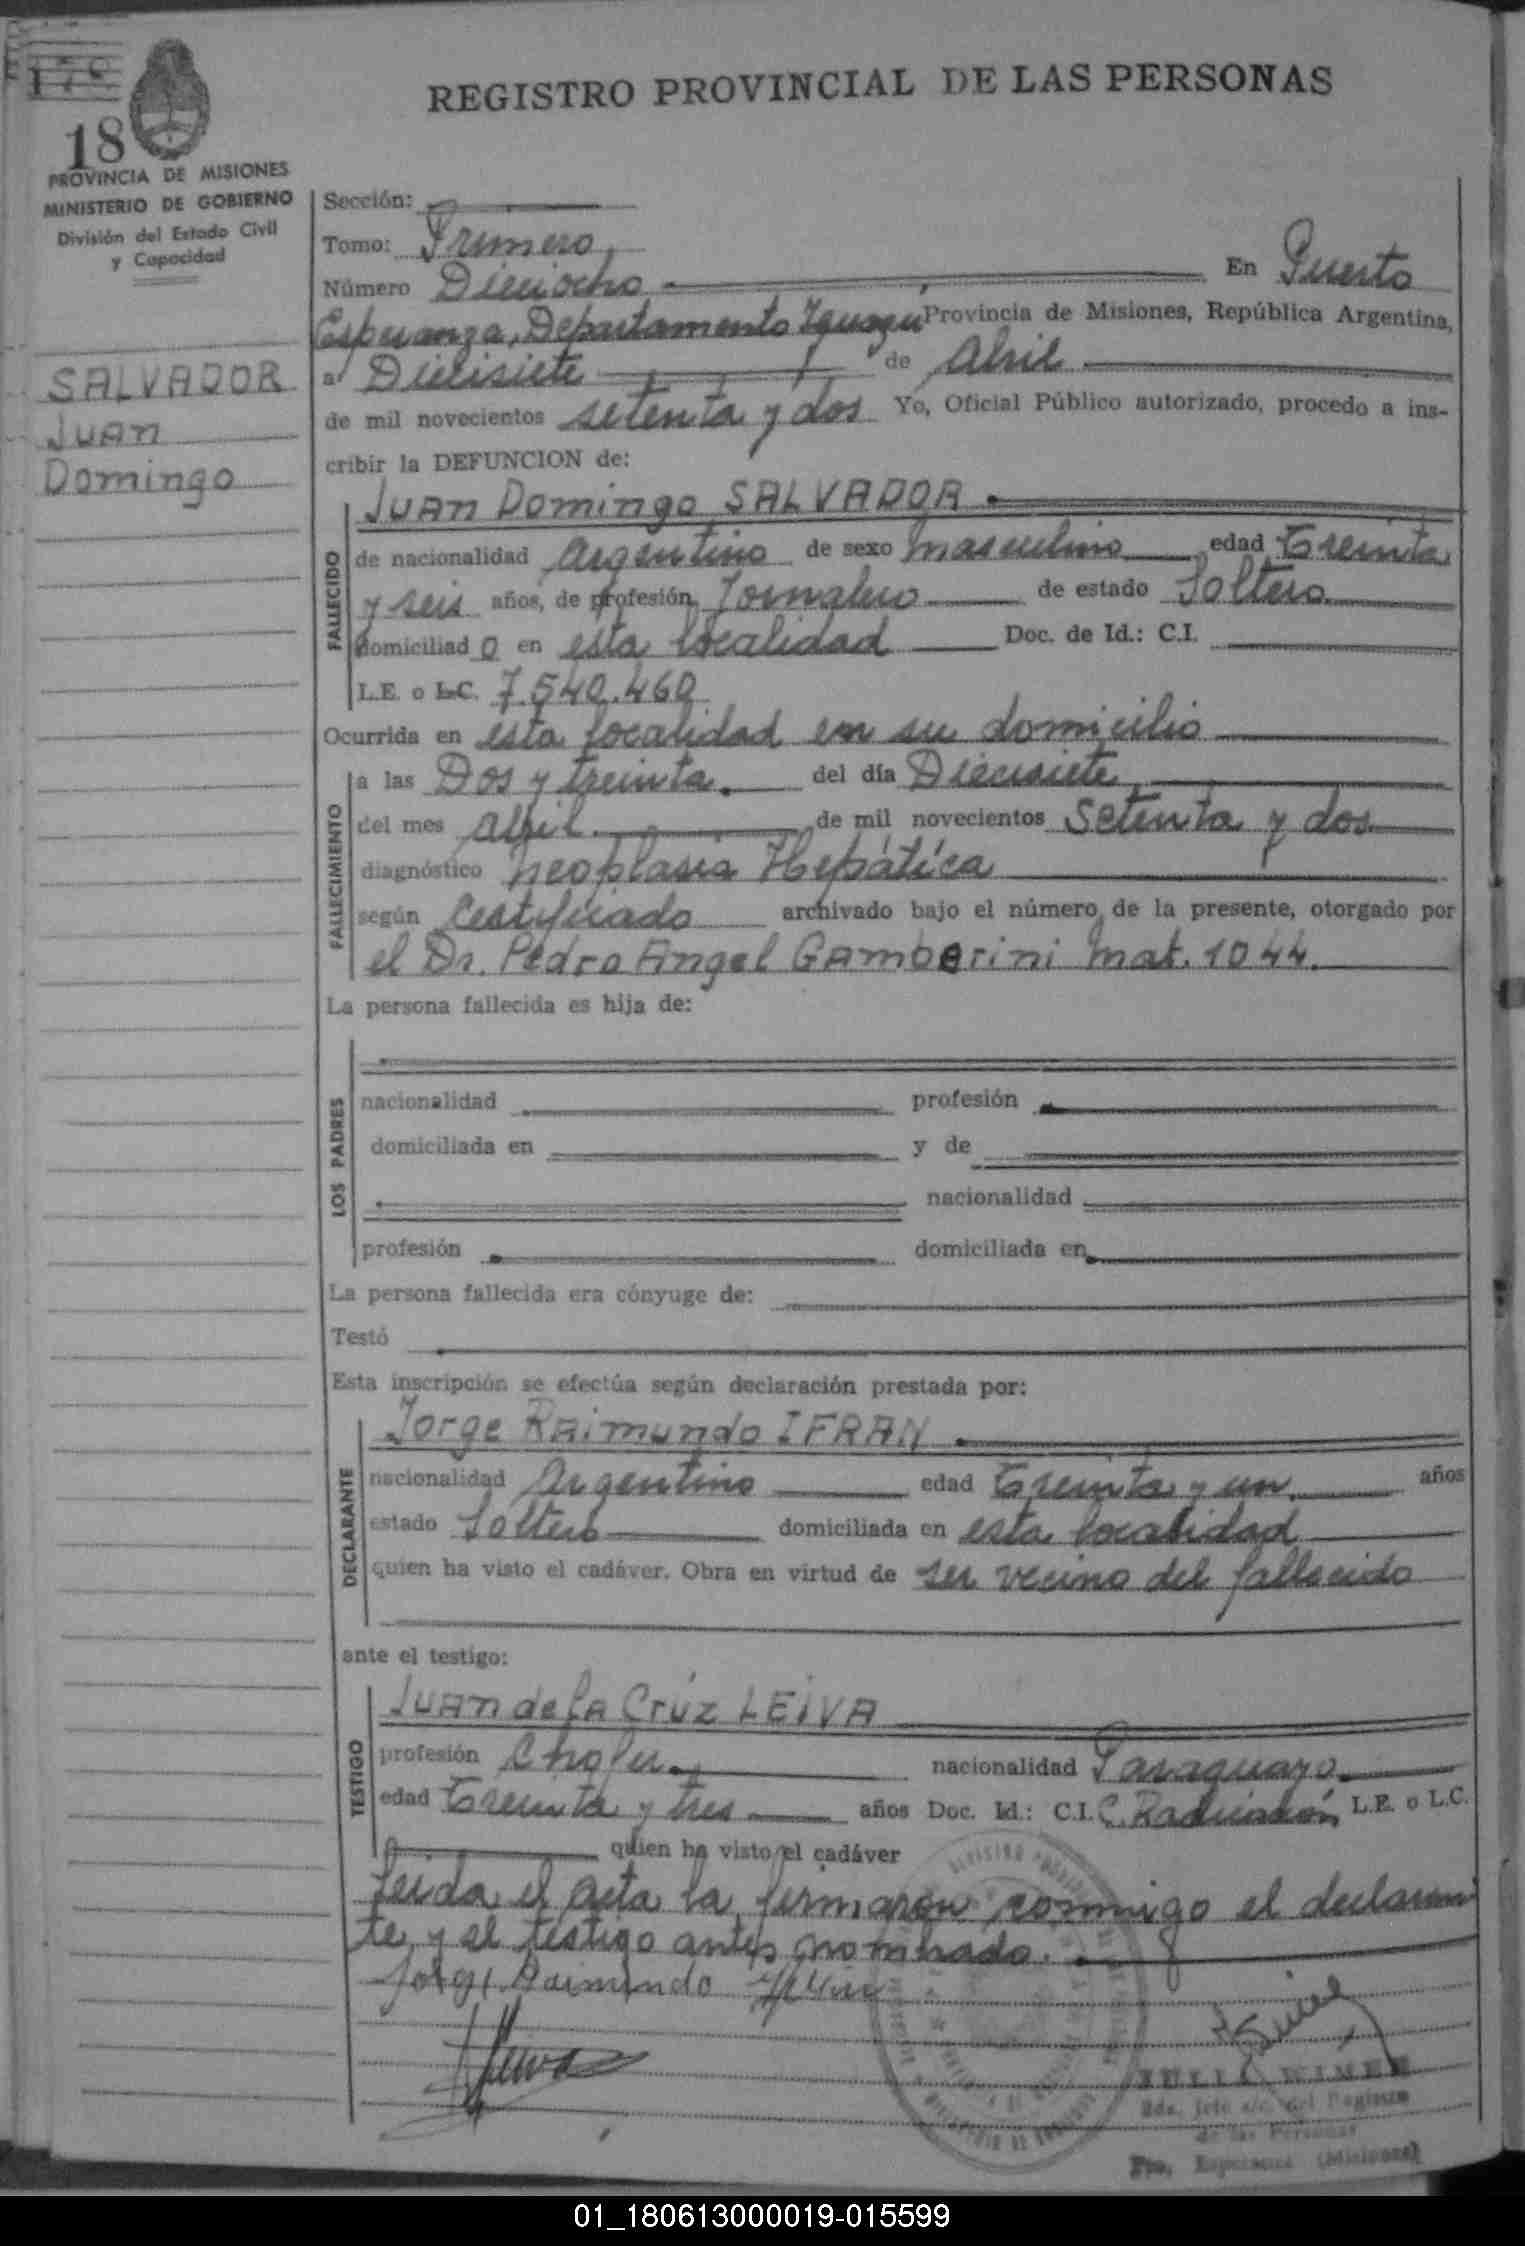 18
PROVINCIA DE MISIONES
MINISTERIO DE GOBIERNO
División del Estado Civil
y Capacidad
SALVADOR
Juan
Domingo
REGISTRO PROVINCIAL DE LAS PERSONAS
Sección:
Tomo: Primero
Número Dieciocho En Puerto
Esperanza, Departamento Iguazú Provincia de Misiones, República Argentina,
a Diecisiete de Abril
de mil novecientos setenta y dos Yo, Oficial Público autorizado, procedo a ins-
cribir la DEFUNCION de:
FALLECIDO
Juan Domingo SALVADOR
de nacionalidad Argentino de sexo masculino edad Treinta
y seis años, de profesión Jornalero de estado Soltero
domiciliado en esta localidad Doc. de Id.: C.I.
L.E. o L.C. 7.540.460
Ocurrida en esta localidad en su domicilio
FALLECIMIENTO
a las Dos y treinta. del día Diecisiete
del mes Abril de mil novecientos Setenta y dos
diagnóstico neoplasia Hepática
según Certificado archivado bajo el número de la presente, otorgado por
el Dr. Pedro Angel Gamberini Mat. 1044.
La persona fallecida es hija de:
LOS PADRES
nacionalidad profesión
domiciliada en y de
nacionalidad
profesión domiciliada en
La persona fallecida era cónyuge de:
Testó
Esta inscripción se efectúa según declaración prestada por:
DECLARANTE
Jorge Raimundo IFRAN
nacionalidad Argentino edad Treinta y un años
estado Soltero domiciliada en esta localidad
quien ha visto el cadáver. Obra en virtud de ser vecino del fallecido
ante el testigo:
TESTIGO
Juan de la Crúz LEIVA
profesión Chofer nacionalidad Paraguayo
edad Treinta y tres años Doc. Id.: C.I. C. Radicación L.E. o L.C.
quien ha visto el cadáver
Leida el acta la firmaron conmigo el declaran
te y el testigo antes nombrado.
Jorge Raimundo
de las Personas
Pto. Esperanza (Misiones)
01_180613000019-015599